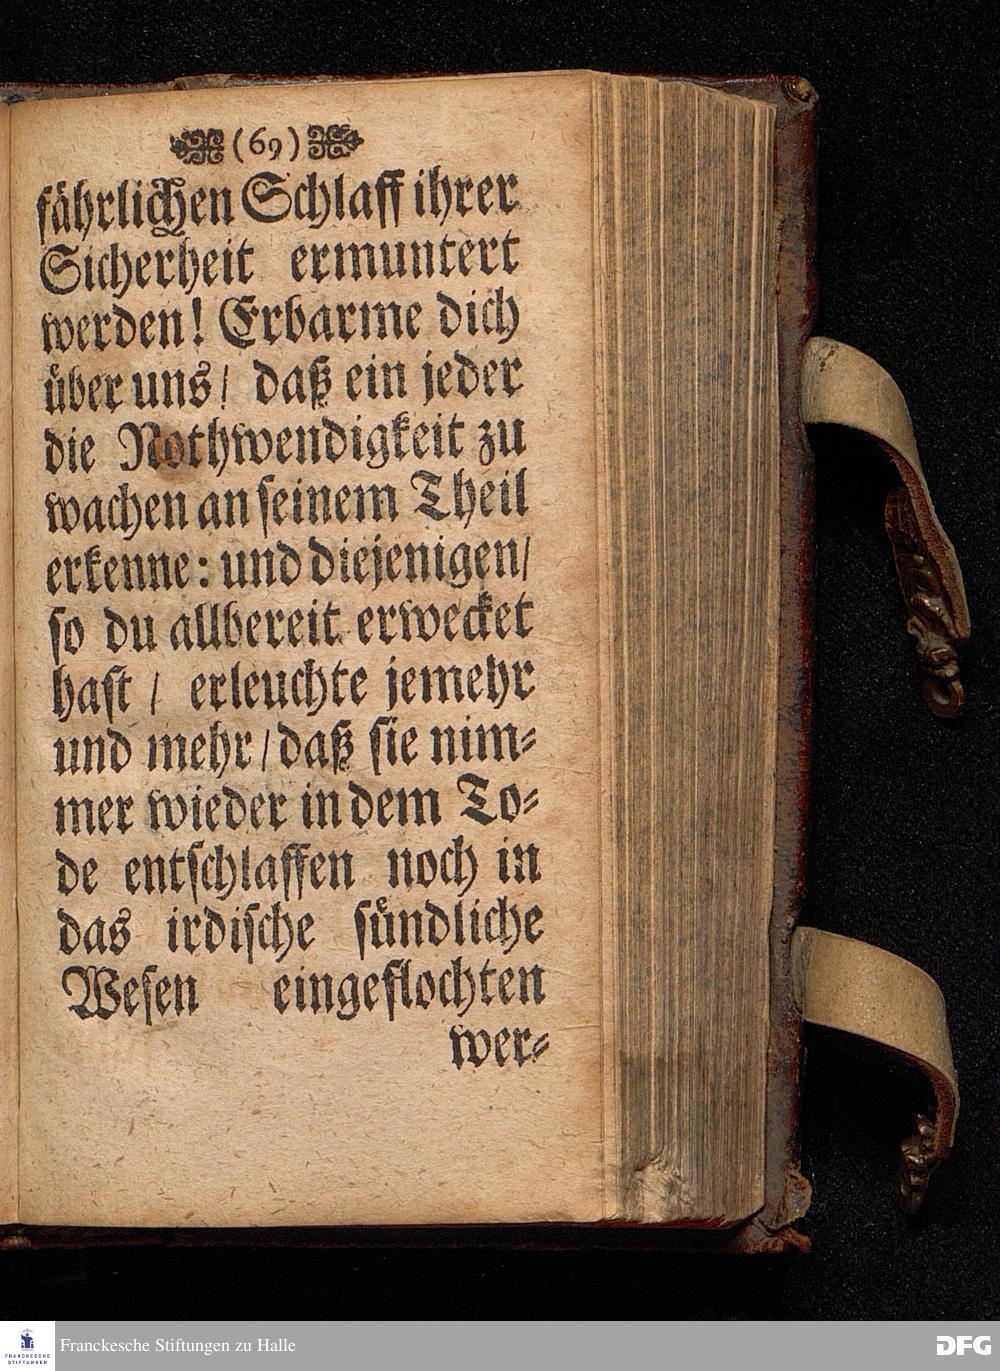 (69)
fährlichen Schlaff ihrer
Sicherheit ermuntert
werden! Erbarme dich
über uns/ daß ein jeder
die Nothwendigkeit zu
wachen an seinem Theil
erkenne: und diejenigen/
so du allbereit erwecket
hast / erleuchte jemehr
und mehr/ daß sie nim-
mer wieder in dem To-
de entschlaffen noch in
das irdische sündliche
Wesen eingeflochten
wer-
FRANCKESCHE
STIFTUNGEN
Franckesche Stiftungen zu Halle
DFG